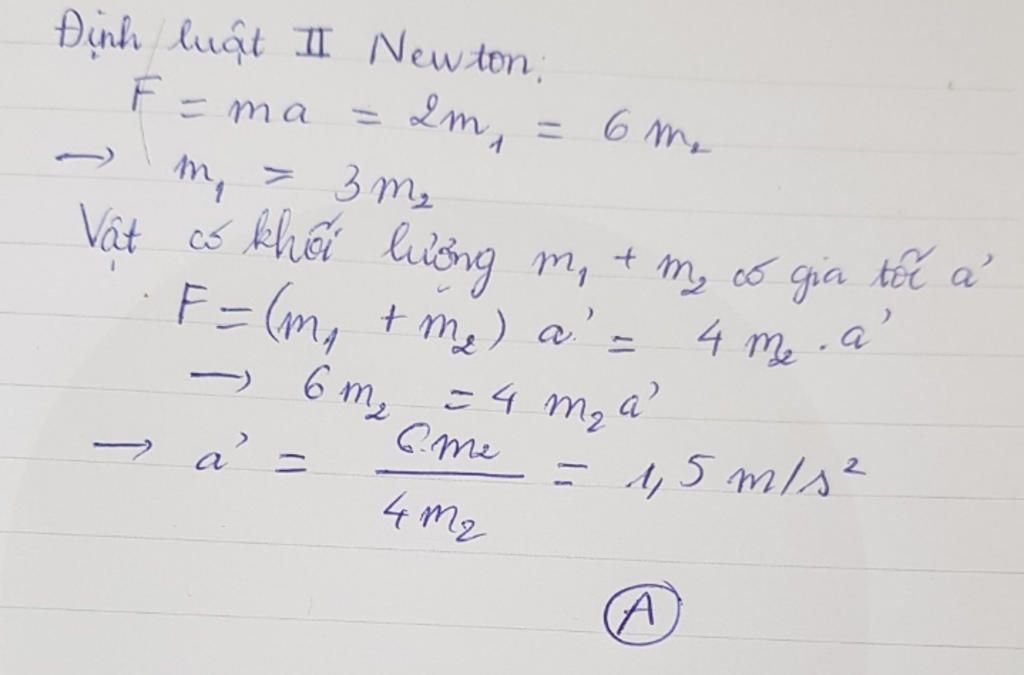 Định luật II Newton:
F = ma = 2m₁ = 6m₂
→ m₁ = 3m₂
Vật có khối lượng m₁ + m₂ có gia tốc a'
F = (m₁ + m₂) a' = 4m₂.a'
→ 6m₂ = 4m₂a'
→ a' = 6m₂/4m₂ = 1,5 m/s²
A